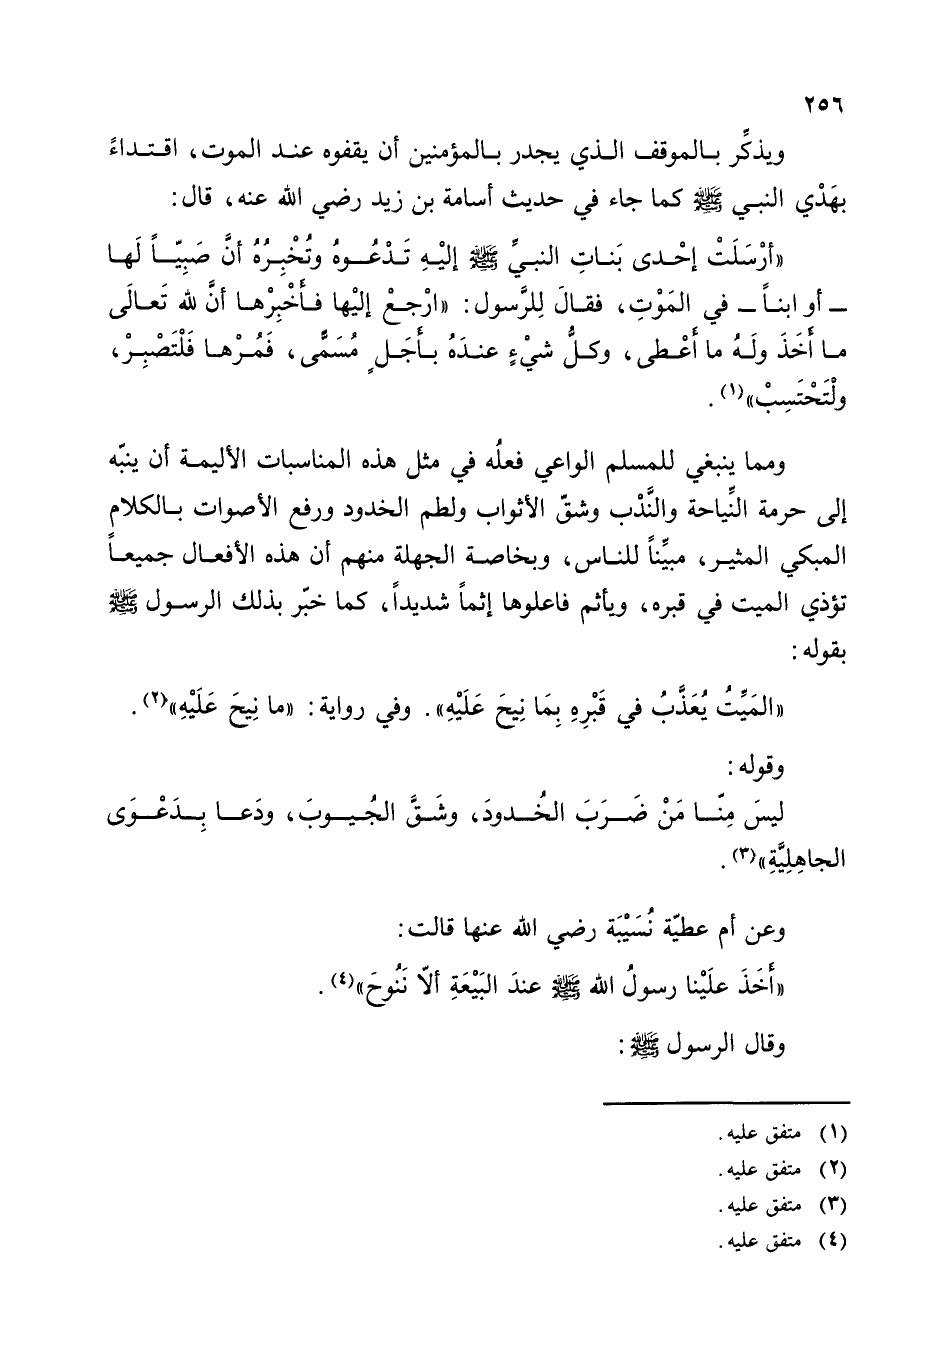 ٢٥٦
ويذكِّر بالموقف الذي يجدر بالمؤمنين أن يقفوه عند الموت، اقتداءً
بهَدْي النبي ﷺ كما جاء في حديث أسامة بن زيد رضي الله عنه، قال:
«أرْسَلَتْ إحْدى بَناتِ النبيِّ ﷺ إليْهِ تَدْعُوهُ وتُخْبِرُهُ أنَّ صَبِيّاً لَها
ـ أو ابناً ـ في المَوْتِ، فقالَ لِلرَّسول: «ارْجعْ إليْها فأَخْبِرْها أنَّ لله تَعالَى
ما أَخَذَ ولَهُ ما أَعْطى، وكلُّ شيْءٍ عندَهُ بأَجَلٍ مُسَمًّى، فَمُرْها فَلْتَصْبِرْ،
ولْتَحْتَسِبْ»(١).
ومما ينبغي للمسلم الواعي فعلُه في مثل هذه المناسبات الأليمة أن ينبّه
إلى حرمة النِّياحة والنَّدْب وشقّ الأثواب ولطم الخدود ورفع الأصوات بالكلام
المبكي المثير، مبيِّناً للناس، وبخاصة الجهلة منهم أن هذه الأفعال جميعاً
تؤذي الميت في قبره، ويأثم فاعلوها إثماً شديداً، كما خبّر بذلك الرسول ﷺ
بقوله:
«المَيِّتُ يُعَذَّبُ في قَبْرِهِ بِمَا نِيحَ عَلَيْهِ». وفي رواية: «ما نِيحَ عَلَيْهِ»(٢).
وقوله:
ليسَ مِنّا مَنْ ضَرَبَ الخُدودَ، وشَقَّ الجُيوبَ، ودَعا بِدَعْوَى
الجاهِلِيَّةِ»(٣).
وعن أم عطيّة نُسَيْبَة رضي الله عنها قالت:
«أَخَذَ علَيْنا رسولُ الله ﷺ عندَ البَيْعَةِ ألاّ نَنُوحَ»(٤).
وقال الرسول ﷺ:
(١) متفق عليه.
(٢) متفق عليه.
(٣) متفق عليه.
(٤) متفق عليه.